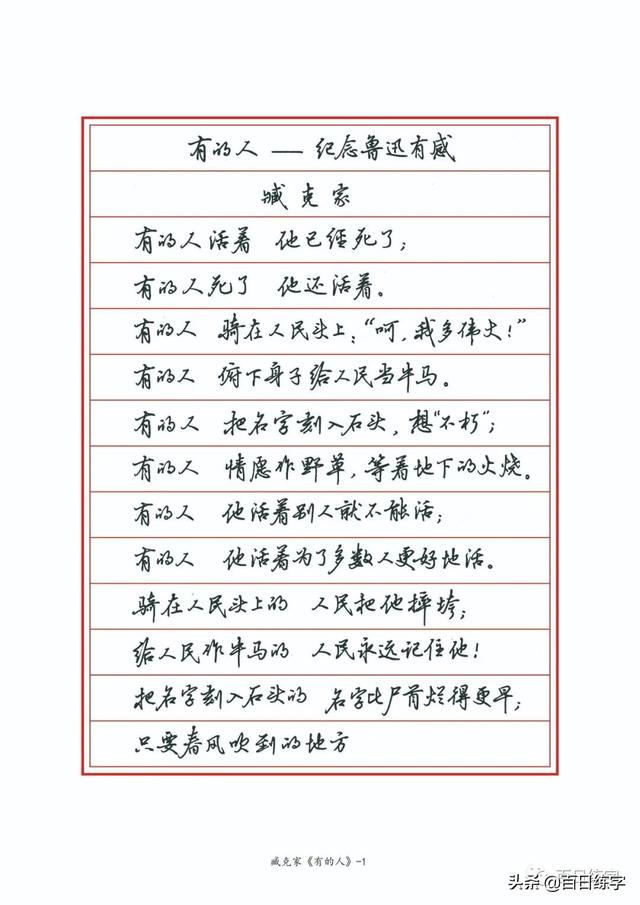 有的人 —— 纪念鲁迅有感
臧克家
有的人活着 他已经死了;
有的人死了 他还活着。
有的人 骑在人民头上:“呵,我多伟大!”
有的人 俯下身子给人民当牛马。
有的人 把名字刻入石头,想“不朽”;
有的人 情愿作野草,等着地下的火烧。
有的人 他活着别人就不能活;
有的人 他活着为了多数人更好地活。
骑在人民头上的 人民把他摔垮;
给人民作牛马的 人民永远记住他!
把名字刻入石头的 名字比尸首烂得更早;
只要春风吹到的地方
臧克家《有的人》-1
头条 @百日练字